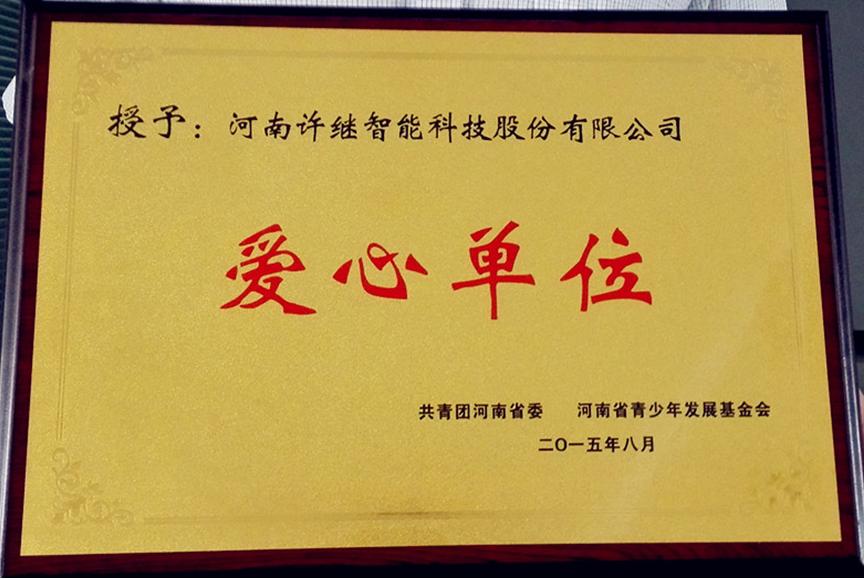 授予：河南许继智能科技股份有限公司
爱心单位
共青团河南省委 河南省青少年发展基金会
二〇一五年八月